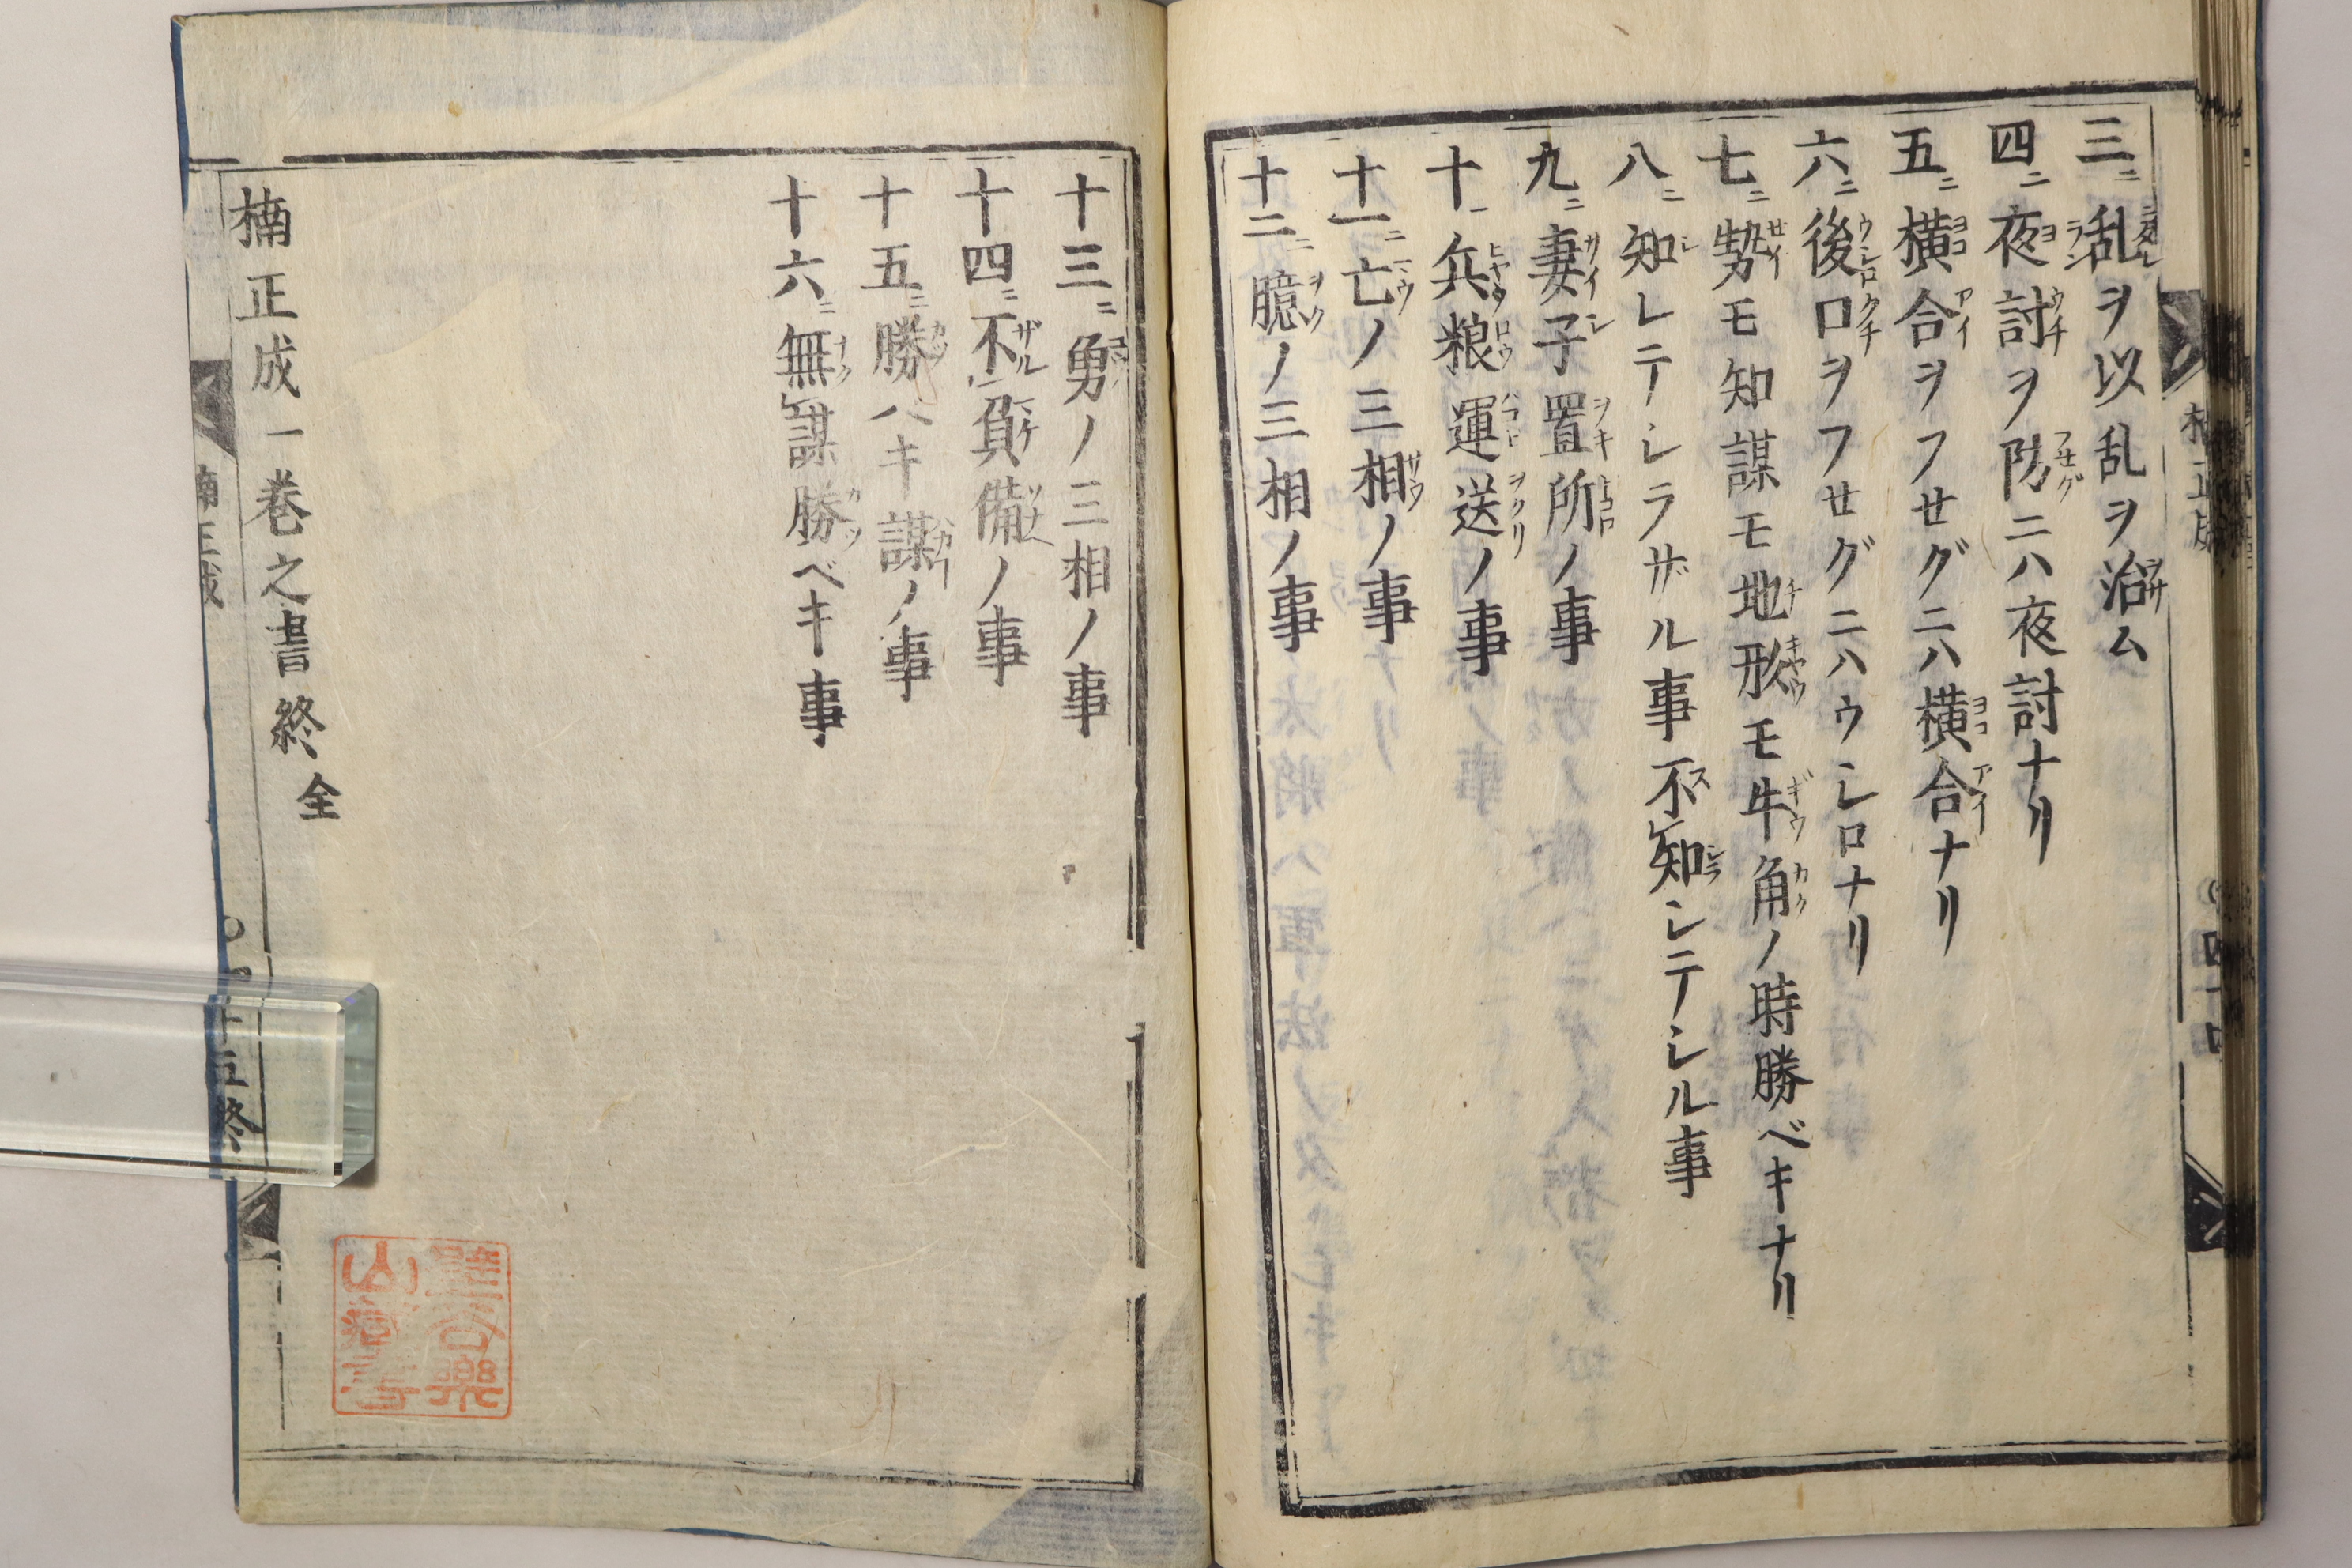 三ニ乱ヲ以乱ヲ治ム
四ニ夜討ヲ防ニハ夜討ナリ
五ニ横合ヲフせグニハ横合ナリ
六ニ後口ヲフせグニハウシロナリ
七ニ勢モ知謀モ地形モ牛角ノ時勝ベキナリ
八ニ知レテシラザル事不知シテシル事
九ニ妻子置所ノ事
十ニ兵粮運送ノ事
十一ニ亡ノ三相ノ事
十二ニ臆ノ三相ノ事
十三ニ勇ノ三相ノ事
十四ニ不負備ノ事
十五ニ勝ハキ謀ノ事
十六ニ無謀勝ベキ事
楠正成一巻之書終全